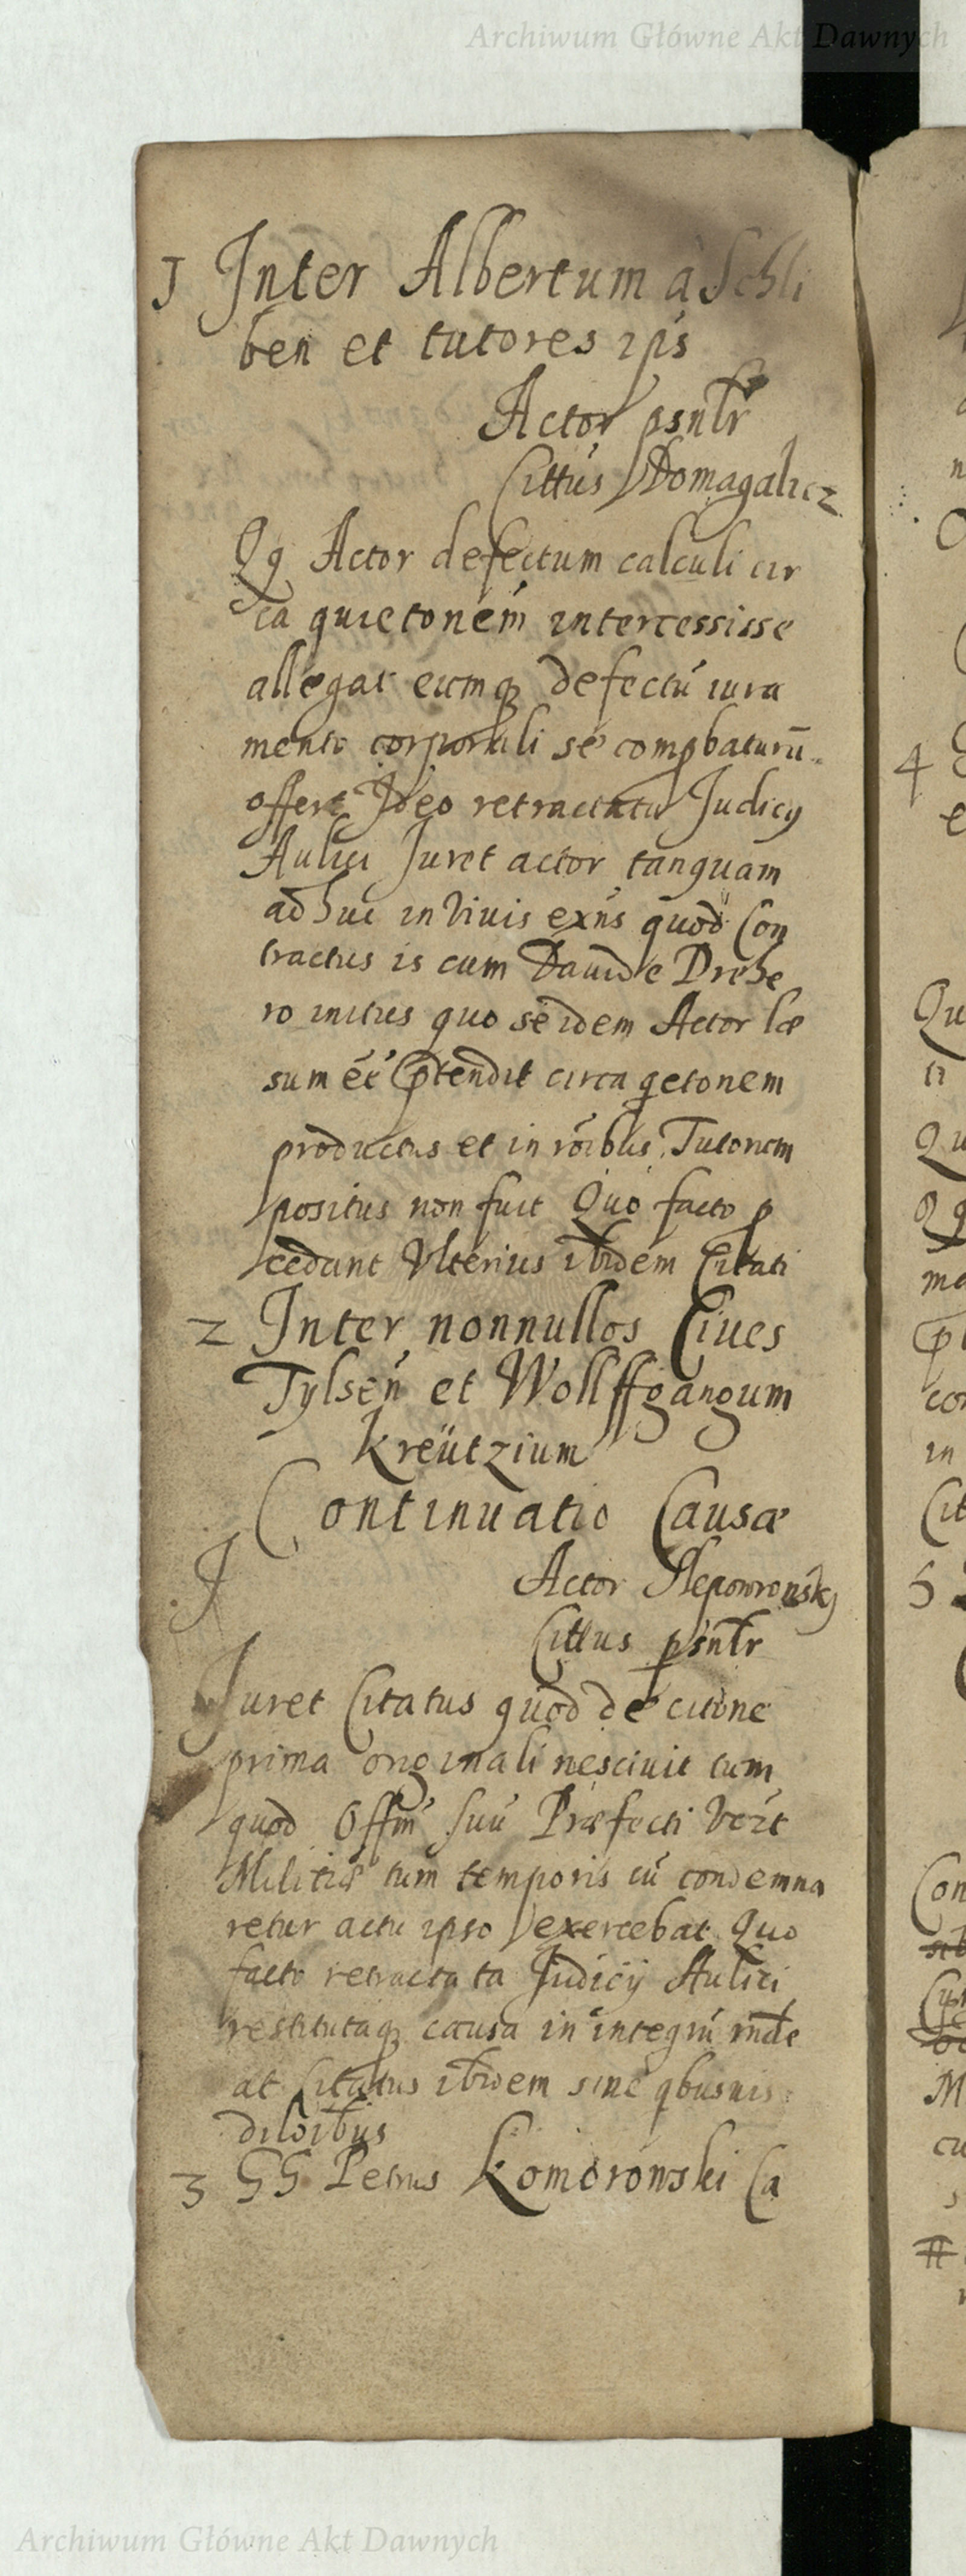 Archiwum Główne Akt Dawnych
1 Inter Albertum a Schli
ben et tutores ips
Actor psnlr
Cittus Domagalicz
Qq Actor defectum calculi cir
ca quietonem intercessisse
allegat eumq defectu iura
mento corporali se compbaturu
offert Ideo retractata Judicij
Aulici Juret actor tanquam
ad huc in vivis exns quod Con
tractus is cum Davide Drehe
ro initus quo se idem Actor læ
sum eé ptendit circa qetonem
productus et in roibus Tutorum
positus non fuit Quo facto p
cedant Ulterius ibidem Citati
2 Inter nonnullos Cives
Tylsen et Wollffgangum
Kreützium
Continuatio Causæ
Actor Slepowronskj
Cittus psnlr
Juret Citatus quod de citone
prima originali nescivit tum
quod Offm suu Præfecti
Militiæ tum temporis cu condemna
retur actu ipso exercebat Quo
facto retractata Judicij Aulici
restitutaq causa in integru rnde
at Citatus ibidem sine qbusuis
diloibus
3 GG Petrus Komorowski Ca
4
Qu
ti
Qu
ma
con
in
Cit
5
Con
M
cu
Archiwum Główne Akt Dawnych